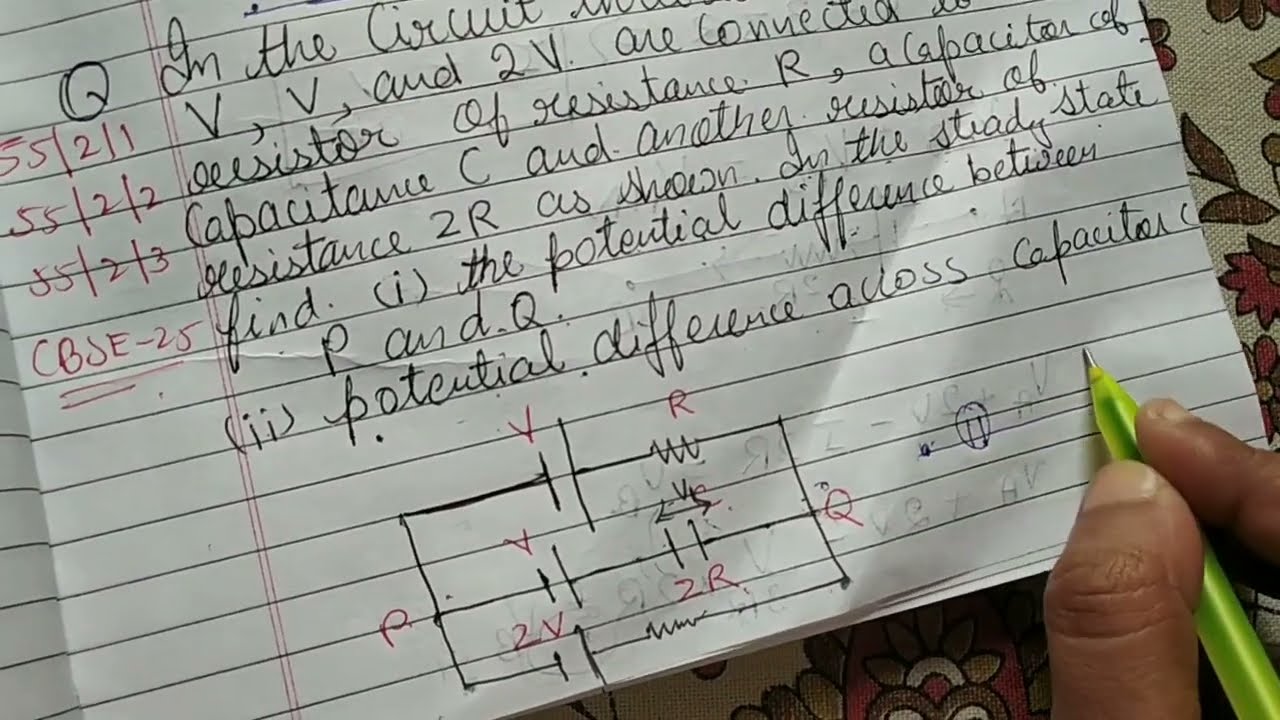 Q In the Circuit
V, V, and 2V. are connected to
55/2/1 resistor of resistance R, a capacitor of
55/2/2 Capacitance C and another resistor of
55/2/3 resistance 2R as shown. In the steady state
CBSE-25 find. (i) the potential difference between
P and Q.
(ii) potential difference across capacitor C
V R
V Vc C Q
P 2V 2R